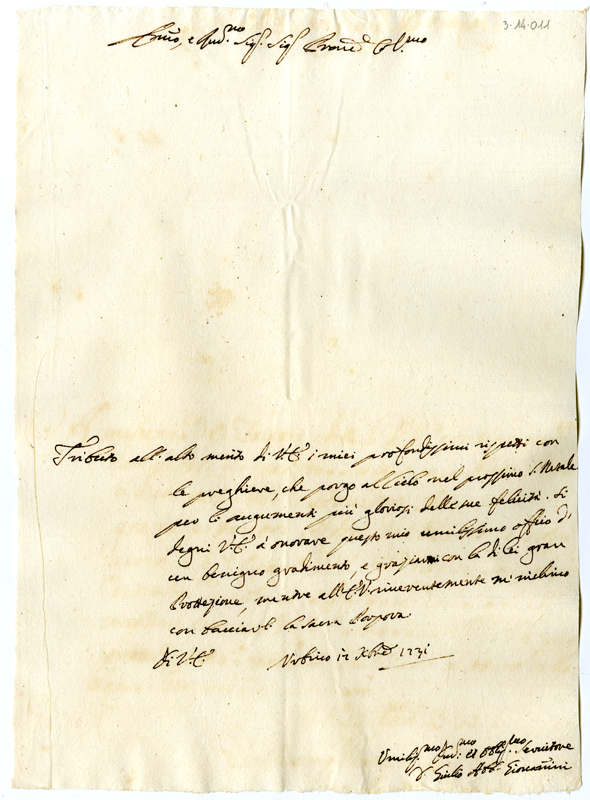 3-14-011
Em̃o, e Rev.mo Sig.r Sig.r Pron̄e Col.mo
Tributo all'alto merito di V.E. i miei profondissimi rispetti con
le preghiere, che porgo al Cielo nel prossimo S. Natale
per li augumenti più gloriosi delle sue felicità. Si
degni V.E. d'onorare questo mio umilissimo offico d'
un benigno gradimento, e graziarmi con la di lei gran
Protezione, mentre all'E.V. riverentemente m'inchino
con bacciarli la sacra Porpora.
Di V.E. Urbino 12 Xbre 1731
Umiliss.mo Dev.mo et Obblig.mo Servitore
Giulio Ab. Giovannini